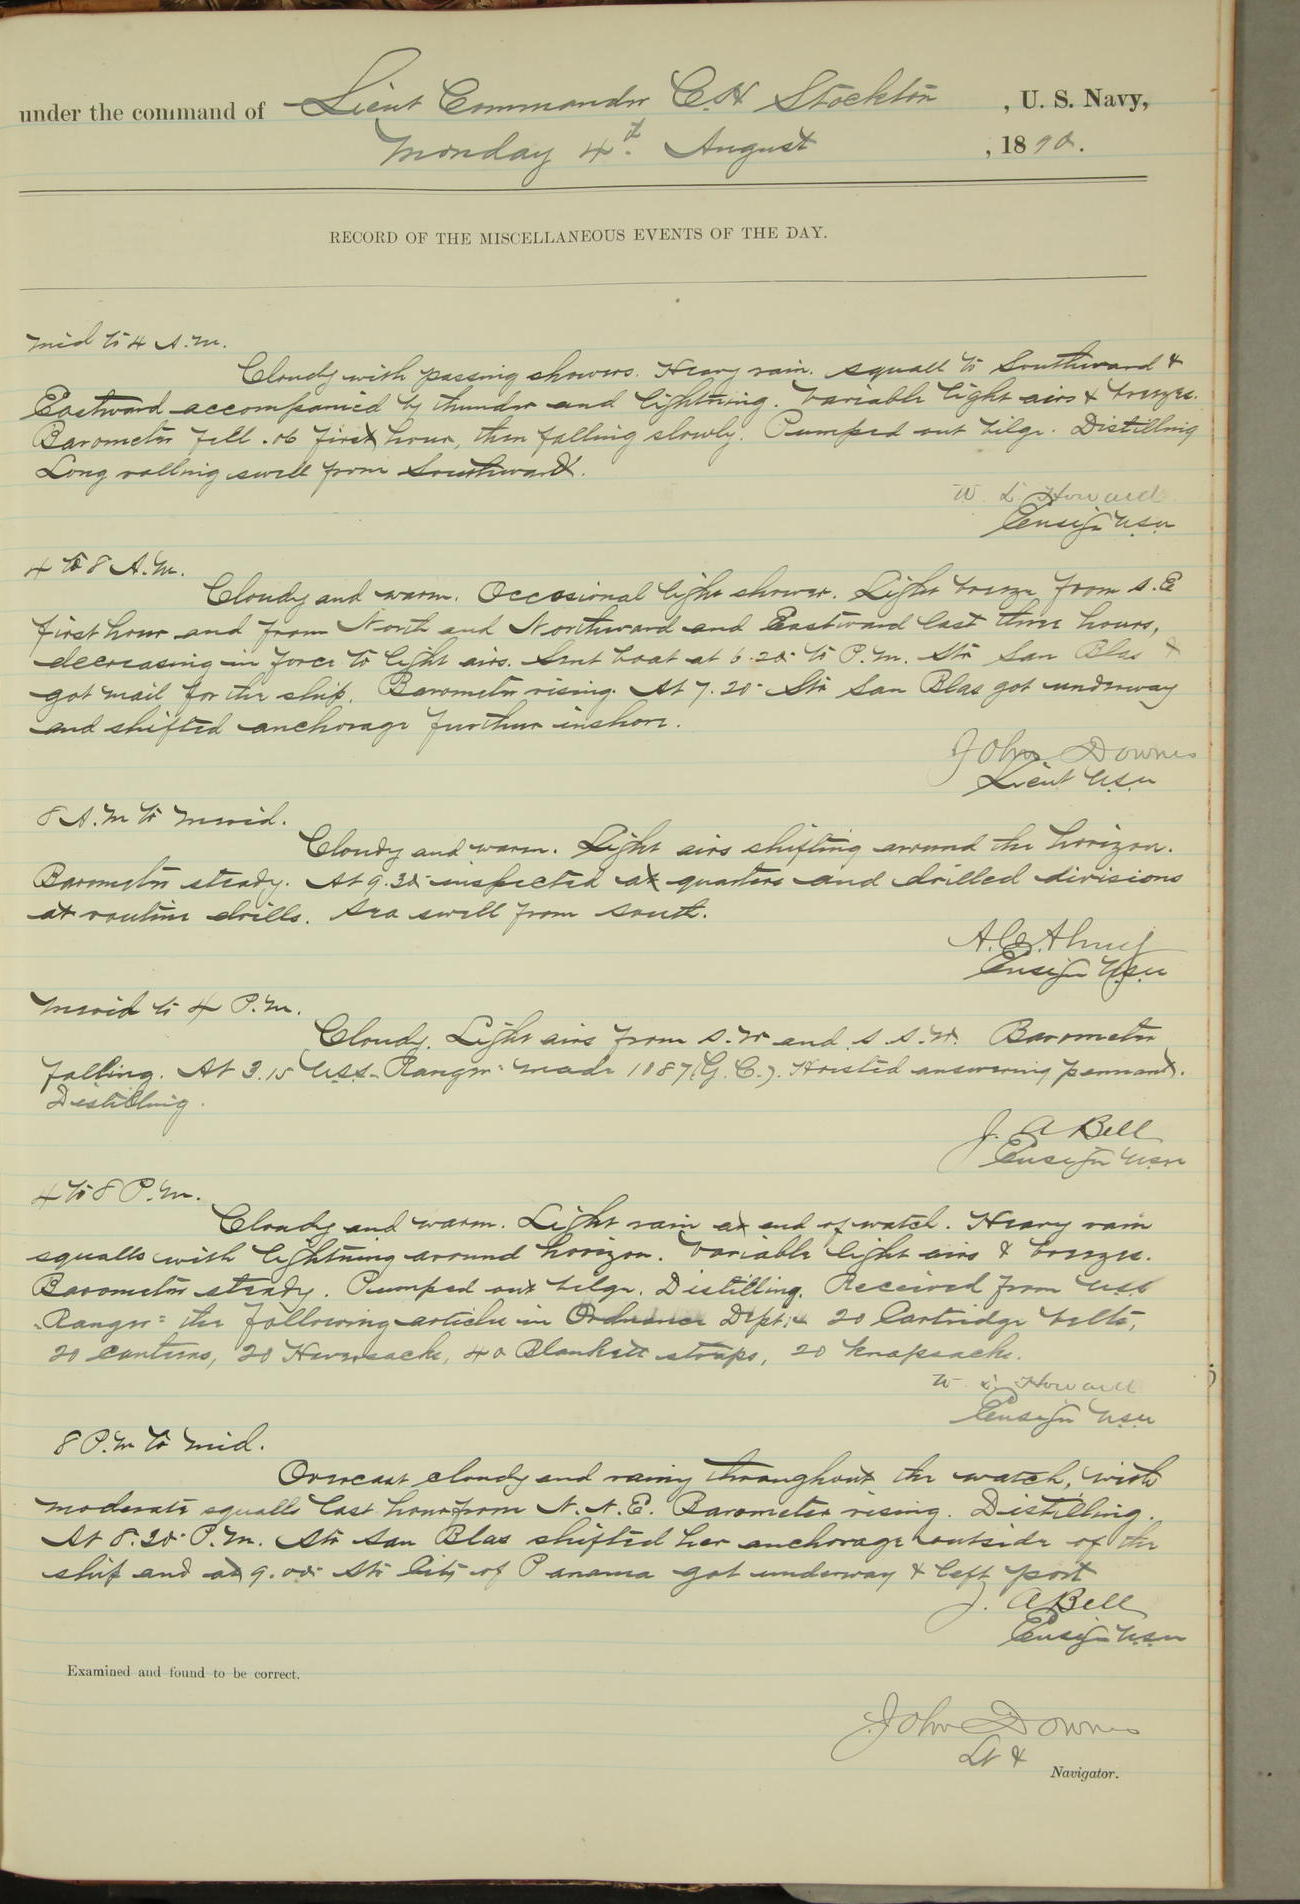 under the command of Lieut Commander C. H. Stockton, U. S. Navy,
Monday 4th August, 1890.
RECORD OF THE MISCELLANEOUS EVENTS OF THE DAY.
Mid to 4 A.M.
Cloudy with passing showers. Heavy rain. squall to Southward &
Eastward accompanied by thunder and lightning. Variable light airs & breezes.
Barometer fell .06 first hour, then falling slowly. Pumped out bilge. Distilling
Long rolling swell from Southward.
W. L. Howard
Ensign U.S.N.
4 to 8 A.M.
Cloudy and warm. Occasional light shower. Light breeze from S.E
first hour and from North and Northward and Eastward last three hours,
decreasing in force to light airs. Sent boat at 6.20 to P.M. Str San Blas &
got mail for the ship. Barometer rising. At 7.20 Str San Blas got underway
and shifted anchorage further inshore.
John Downes
Lieut U.S.N.
8 A.M to Merid.
Cloudy and warm. Light airs shifting around the horizon.
Barometer steady. At 9.30 inspected at quarters and drilled divisions
at routine drills. Sea swell from South.
A. C. Almy
Ensign U.S.N.
Merid to 4 P.M.
Cloudy. Light airs from S.W and S S.W. Barometer
falling. At 3.15 U.S.S. "Ranger" made 1087 (G. C.). Hoisted answering pennant.
Distilling.
J. A Bell
Ensign U.S.N.
4 to 8 P.M.
Cloudy and warm. Light rain at end of watch. Heavy rain
squalls with lightning around horizon. Variable light airs & breezes.
Barometer steady. Pumped out bilge. Distilling. Received from USS
"Ranger" the following articles in Ordnance Dept:- 20 Cartridge belts,
20 canteens, 20 Haversacks, 40 Blanket straps, 20 knapsacks.
W. L. Howard
Ensign U.S.N.
8 P.M to Mid.
Overcast cloudy and rainy throughout the watch, with
moderate squalls last hour from N. N. E. Barometer rising. Distilling.
At 8.20 P.M. Str San Blas shifted her anchorage outside of the
ship and at 9.00 Str City of Panama got underway & left port
J. A Bell
Ensign U.S.N.
Examined and found to be correct.
John Downes
Lt &
Navigator.